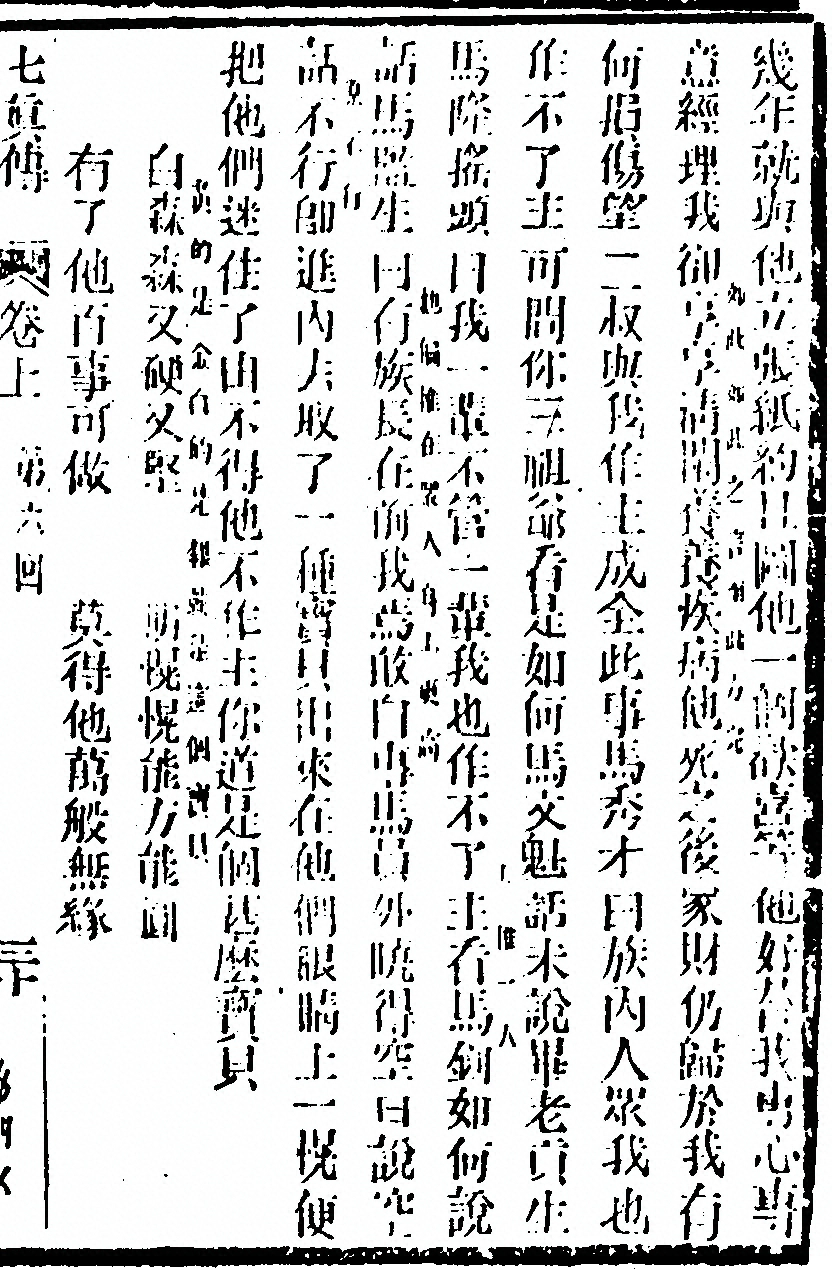 幾年就與他立張紙約且圖他一個歡喜等他好替我專心專
意經理我卻享享清閒養養疾病他死之後家財仍歸於我有
如此如此之言
何損傷望二叔與我作主成全此事馬秀才曰族內人眾我也
作不了主可問你三祖爺看是如何馬文魁話未說畢老貢生
惟一人
馬隆搖頭曰我一輩不管二輩我也作不了主看馬鈞如何說
他偏推在眾人身上更高
話馬監生曰有族長在前我焉敢自專馬員外曉得空口說空
話不行即進內去取了一種寶貝出來在他們眼睛上一愰便
把他們迷住了由不得他不作主你道是個甚麼寶貝
黃的是金白的是銀就是這個寶貝
白森森又硬又堅　明愰愰能方能圓
有了他百事可做　莫得他萬般無緣
七真傳　卷上　第六回　三十